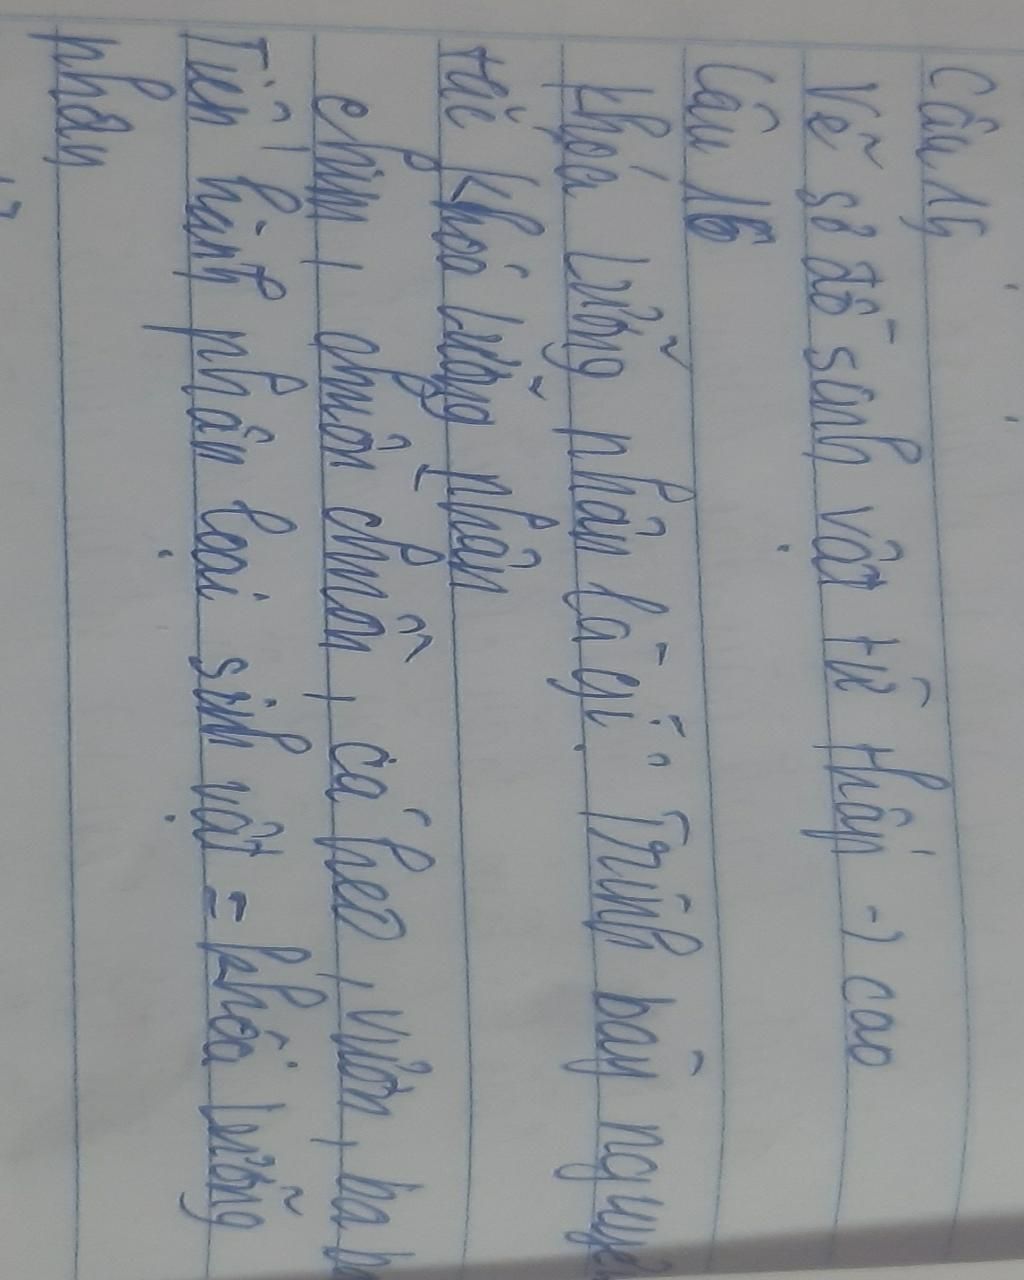 Câu 15
Vẽ sơ đồ sinh vật từ thấp -> cao
Câu 16
Khóa lưỡng phân là gì. Trình bày nguyê
tắc khóa lưỡng phân
chim, chuồn chuồn, cá heo, vượn, ba b
Tiến hành phân loại sinh vật = khóa lưỡng
phân